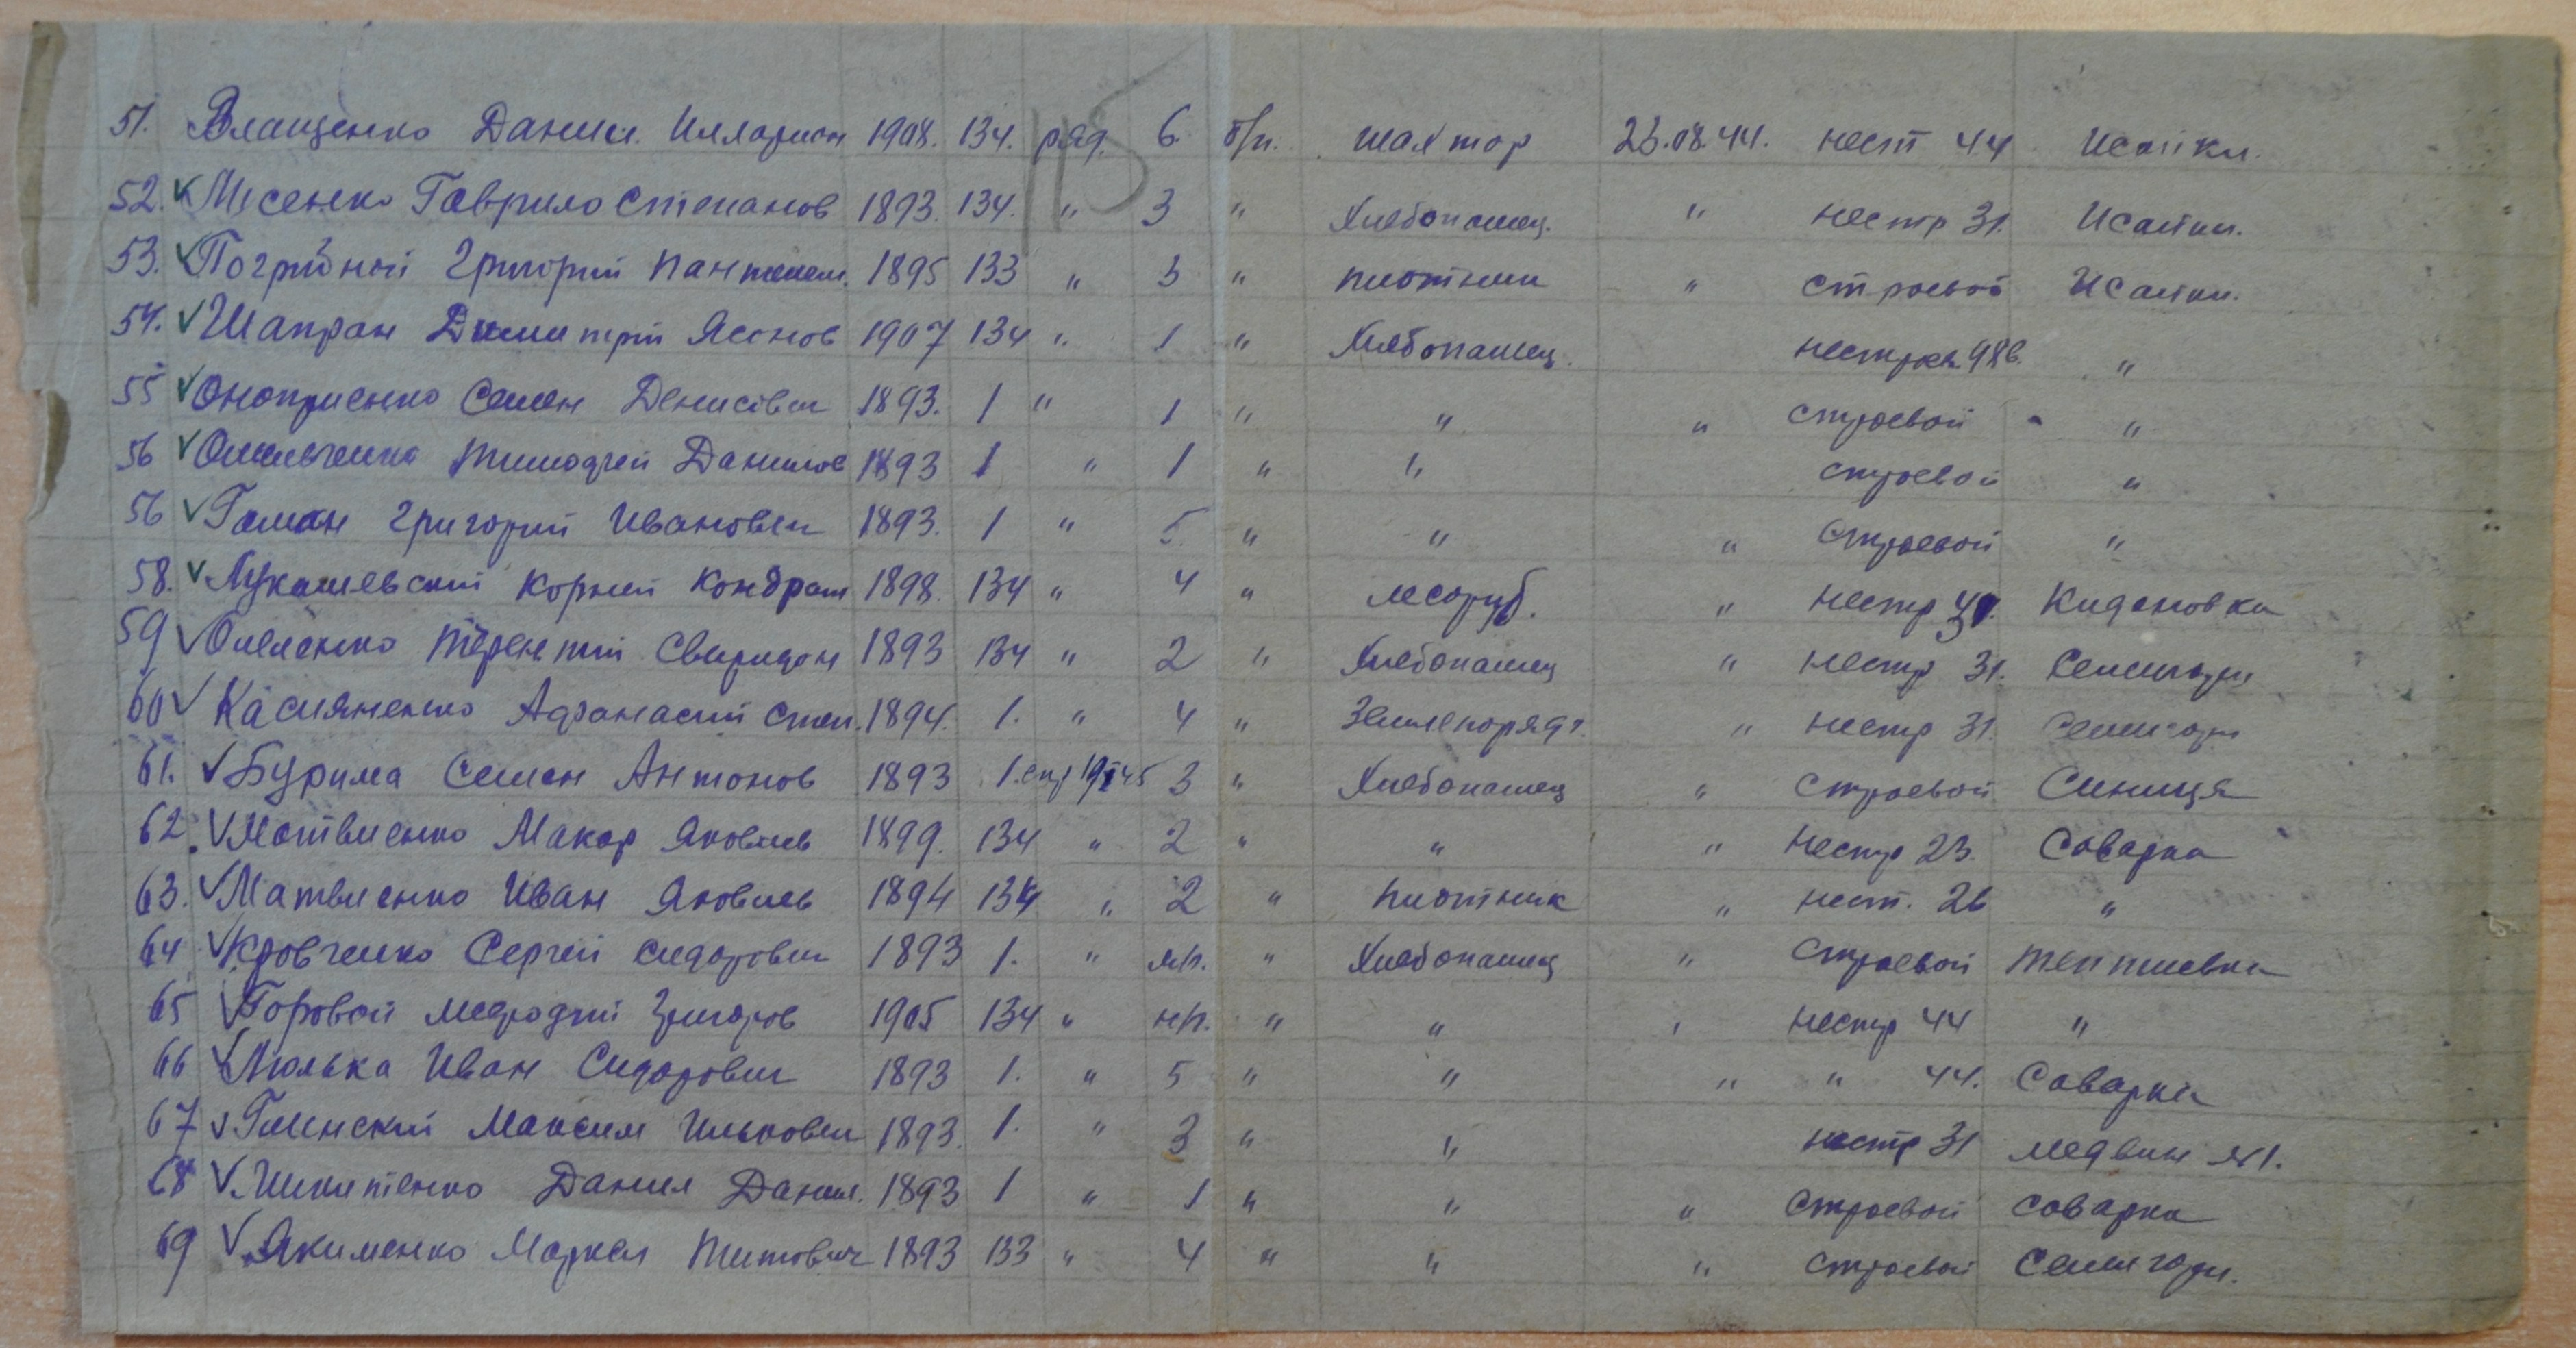 51. Влащенко Данил. Илларион 1908. 134. ряд. 6. б/п. шахтор 23.08.44. нест 44 Исайки.
52. Мисенко Гаврило Степанов 1893. 134. " 3 " Хлебопашец. " нестр 31. Исайки.
53. Погрибной Григорий Пантелем. 1895 133 " 3 " плотник " строевой Исайки.
54. Шапран Димитрий Ясонов 1907 134 " 1 " Хлебопашец. нестр 98б. "
55 Оноприенко Семен Денисович 1893. 1 " 1 " " " строевой "
56 Омельченко Тимофей Данилов 1893 1 " 1 " " строевой "
56 Гаман Григорий Иванович 1893. 1 " 5. " " " Строевой "
58. Лукашевский Корней Кондрат 1898. 134 " 4 " лесоруб. " нестр 31. Кидановка
59 Омеленко Терентий Свиридон 1893 134 " 2 " Хлебопашец " нестр 31. Семигоры
60 Касияненко Афанасий Степ. 1894. 1. " 4 " Землепоряд. " нестр 31. Семигоры
61. Бурима Семен Антонов 1893 1. 3 " Хлебопашец " Строевой Синиця
62. Матвиенко Макар Яковлев 1899. 134 " 2 " " " нестр 23. Саварка
63. Матвиенко Иван Яковлев 1894 134 " 2 " плотник " нест. 26 "
64 Кровченко Сергей Сидорович 1893 1. " н/п. " Хлебопашец " Строевой Тептиевка
65 Боровой Мефодий Григоров 1905 134 " н/п. " " " нестр 44 "
66 Люлька Иван Сидорович 1893 1. " 5 " " " " 44. Саварка
67 Глинский Максим Илькович 1893. 1. " 3 " " нестр 31 Медвин №1.
68 Микитенко Данил Данил. 1893 1 " 1 " " " Строевой Саварка
69 Якименко Маркел Титович 1893 133 " 4 " " " строевой Семигоры.